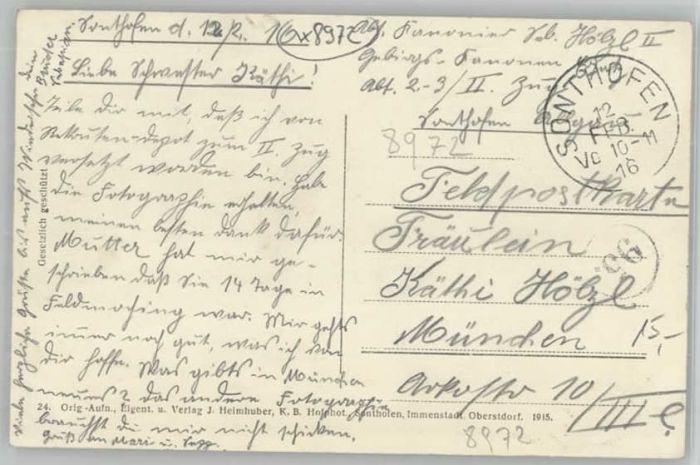 Sonthofen d. 12/2. 16
x8972
Liebe Schwester Käthi!
Teile dir mit, daß ich von
Rekruten-depot zum II. Zug
versetzt worden bin. Habe
die Fotographie erhalten,
meinen besten dank dafür.
Mutter hat mir ge-
schrieben daß Sie 14 Tage in
Feldmoching war. Mir gehts
immer noch gut, was ich von
dir hoffe. Was gibts in München
neues? das andere Fotographie
brauchst du mir nicht schicken.
Gruß an Mari u. Sepp.
Viele herzliche Grüße bis aufs Wiedersehn dein
Bruder
Sebastian
Gesetzlich geschützt
Abs. Kanonier Seb. Hölzl II
Gebirgs-Kanonen
Abt. 2-3/II. Zug
Sonthofen
SONTHOFEN
12
FEB.
Vc 10-11
16
8972
Feldpostkarte
Fräulein
Käthi Hölzl
München
15,-
Arkostr 10/III
24. Orig.-Aufn., Eigent. u. Verlag J. Heimhuber, K. B. Hofphot. Sonthofen, Immenstadt, Oberstdorf. 1915.
8972